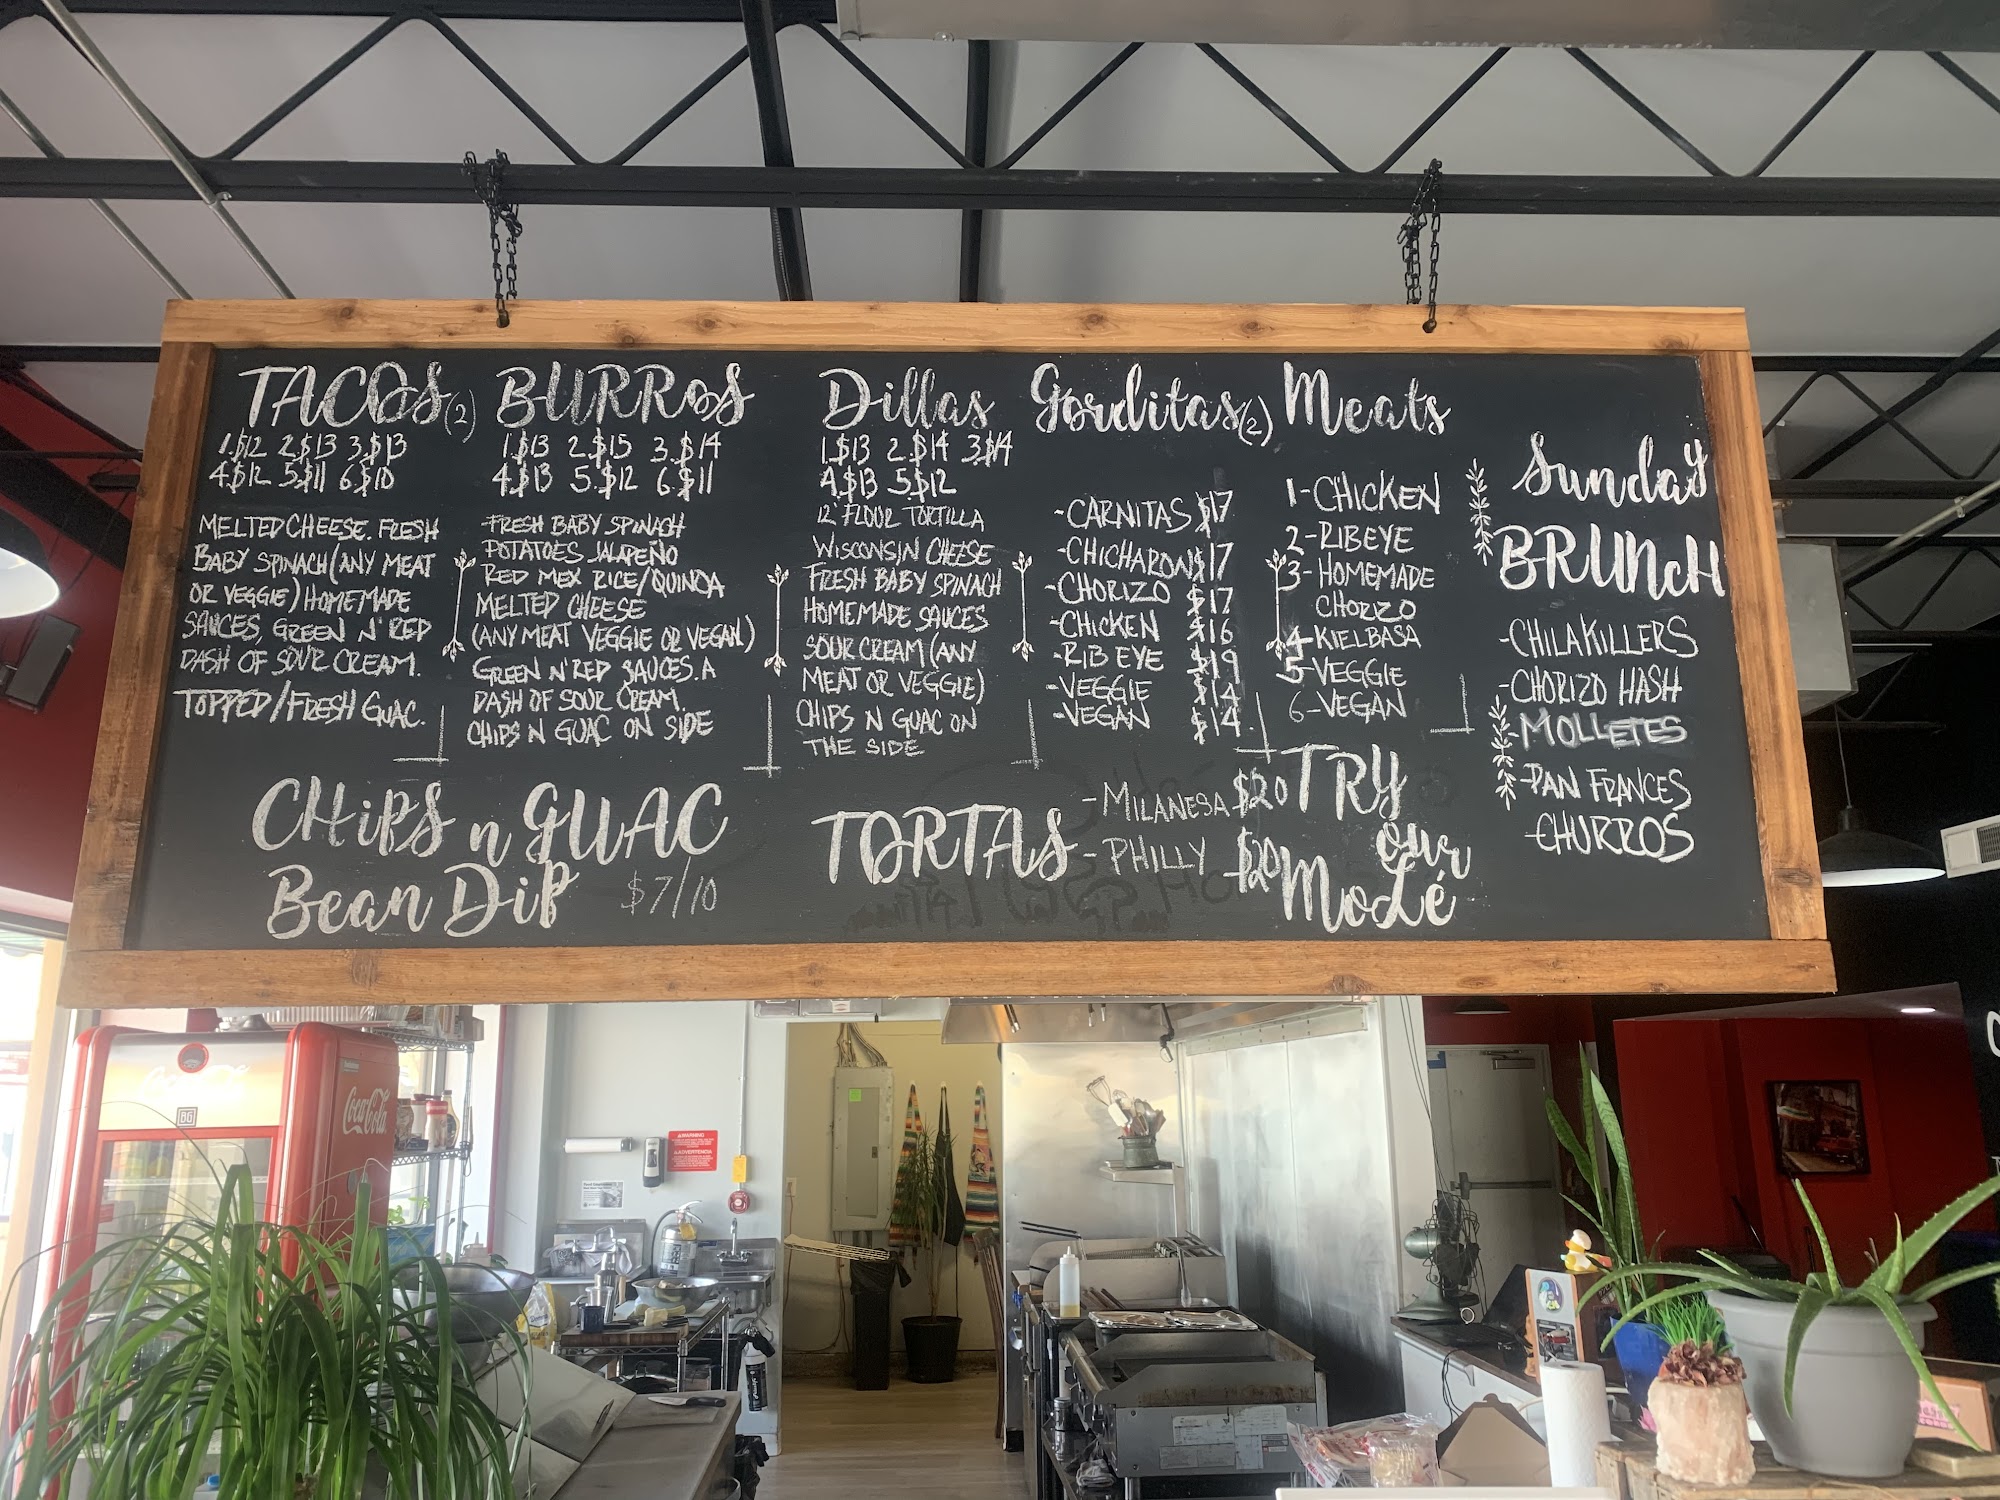 TACOS (2)
1.$12 2.$13 3.$13
4.$12 5.$11 6.$10
MELTED CHEESE. FRESH
BABY SPINACH (ANY MEAT
OR VEGGIE) HOMEMADE
SAUCES, GREEN N' RED
DASH OF SOUR CREAM.
TOPPED/FRESH GUAC.
BURROS
1.$13 2.$15 3.$14
4.$13 5.$12 6.$11
-FRESH BABY SPINACH
POTATOES JALAPEÑO
RED MEX RICE/QUINOA
MELTED CHEESE
(ANY MEAT VEGGIE OR VEGAN)
GREEN N' RED SAUCES. A
DASH OF SOUR CREAM.
CHIPS N GUAC ON SIDE
Dillas
1.$13 2.$14 3.$14
4.$13 5.$12
12" FLOUR TORTILLA
WISCONSIN CHEESE
FRESH BABY SPINACH
HOMEMADE SAUCES
SOUR CREAM (ANY
MEAT OR VEGGIE)
CHIPS N GUAC ON
THE SIDE
Gorditas (2)
-CARNITAS $17
-CHICHARON $17
-CHORIZO $17
-CHICKEN $16
-RIB EYE $19
-VEGGIE $14
-VEGAN $14.
Meats
1-CHICKEN
2-RIBEYE
3-HOMEMADE
CHORIZO
4-KIELBASA
5-VEGGIE
6-VEGAN
Sunday
BRUNCH
-CHILAKILLERS
-CHORIZO HASH
-MOLLETES
-PAN FRANCES
-CHURROS
CHiPS n GUAC
Bean DiP $7/10
TORTAS -MILANESA $20
-PHILLY $20
TRY
our
Molé
Coca-Cola
WARNING
ADVERTENCIA